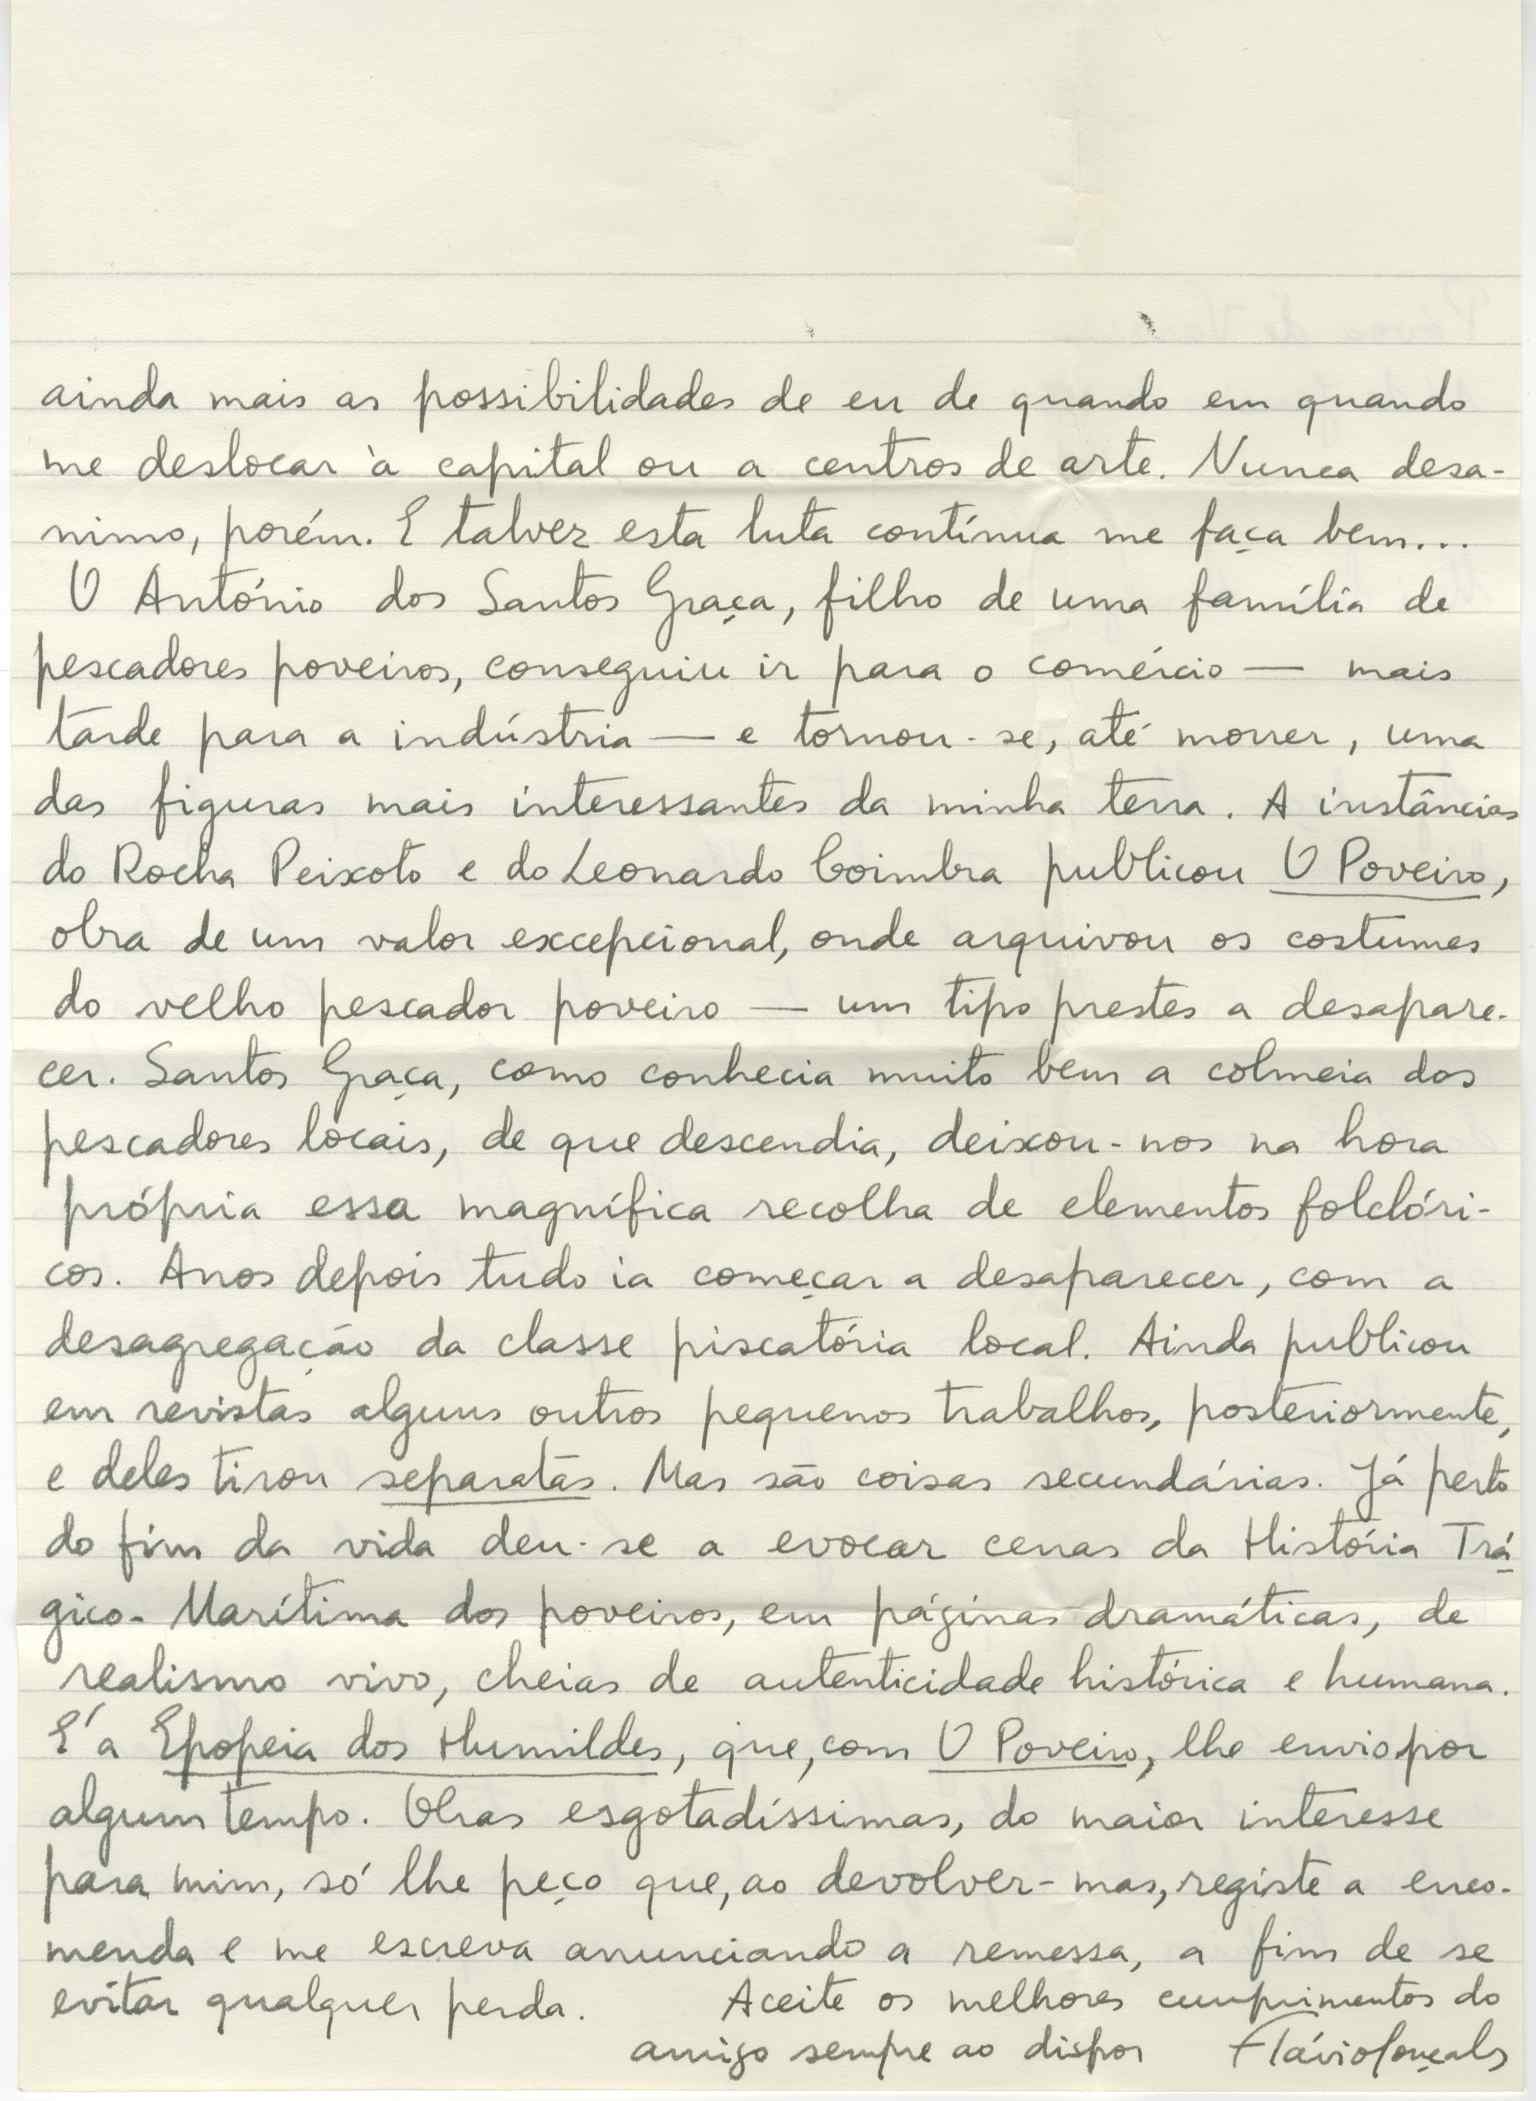 ainda mais as possibilidades de eu de quando em quando
me deslocar à capital ou a centros de arte. Nunca desa-
nimo, porém. E talvez esta luta contínua me faça bem...
O António dos Santos Graça, filho de uma família de
pescadores poveiros, conseguiu ir para o comércio — mais
tarde para a indústria — e tornou-se, até morrer, uma
das figuras mais interessantes da minha terra. A instâncias
do Rocha Peixoto e do Leonardo Coimbra publicou O Poveiro,
obra de um valor excepcional, onde arquivou os costumes
do velho pescador poveiro — um tipo prestes a desapare-
cer. Santos Graça, como conhecia muito bem a colmeia dos
pescadores locais, de que descendia, deixou-nos na hora
própria essa magnífica recolha de elementos folclóri-
cos. Anos depois tudo ia começar a desaparecer, com a
desagregação da classe piscatória local. Ainda publicou
em revistas alguns outros pequenos trabalhos, posteriormente,
e deles tirou separatas. Mas são coisas secundárias. Já perto
do fim da vida deu-se a evocar cenas da História Trá
gico-Marítima dos poveiros, em páginas dramáticas, de
realismo vivo, cheias de autenticidade histórica e humana.
É a Epopeia dos Humildes, que, com O Poveiro, lhe envio por
algum tempo. Obras esgotadíssimas, do maior interesse
para mim, só lhe peço que, ao devolver-mas, registe a enco-
menda e me escreva anunciando a remessa, a fim de se
evitar qualquer perda. Aceite os melhores cumprimentos do
amigo sempre ao dispor Flávio Gonçalves